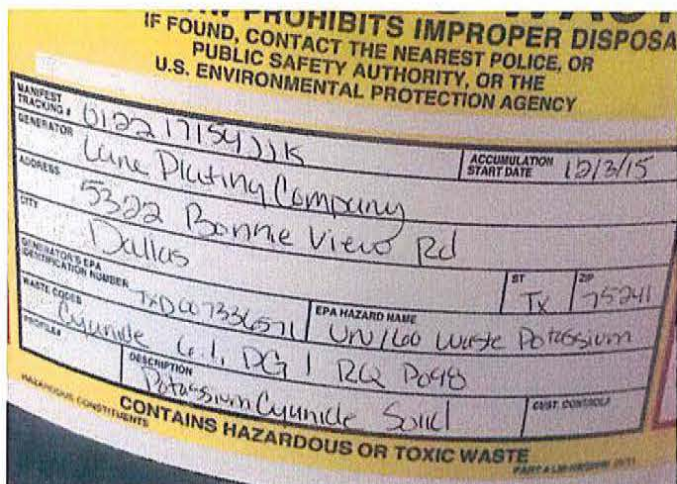 PROHIBITS IMPROPER DISPOSA
IF FOUND, CONTACT THE NEAREST POLICE, OR
PUBLIC SAFETY AUTHORITY, OR THE
U.S. ENVIRONMENTAL PROTECTION AGENCY
MANIFEST TRACKING # ACCUMULATION START DATE 12/3/15
GENERATOR Lane Plating Company
ADDRESS 5322 Bonnie View Rd
CITY Dallas ST Tx ZIP 75241
GENERATOR'S EPA IDENTIFICATION NUMBER TXD007336571 EPA HAZARD NAME Waste Potassium
WASTE CODES Cyanide 6.1, PG I RQ
PROFILE# DESCRIPTION Potassium Cyanide Solid CUST. CONTROL#
HAZARDOUS CONSTITUENTS CONTAINS HAZARDOUS OR TOXIC WASTE